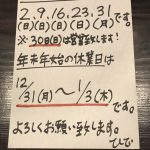 2.9.16.23.31
(日)(日)(日)(日)(月)です。
※30日(日)は営業致します!
年末年始の休業日は
12/31(月)〜1/3(木)
です。
よろしくお願い致します。
ひで